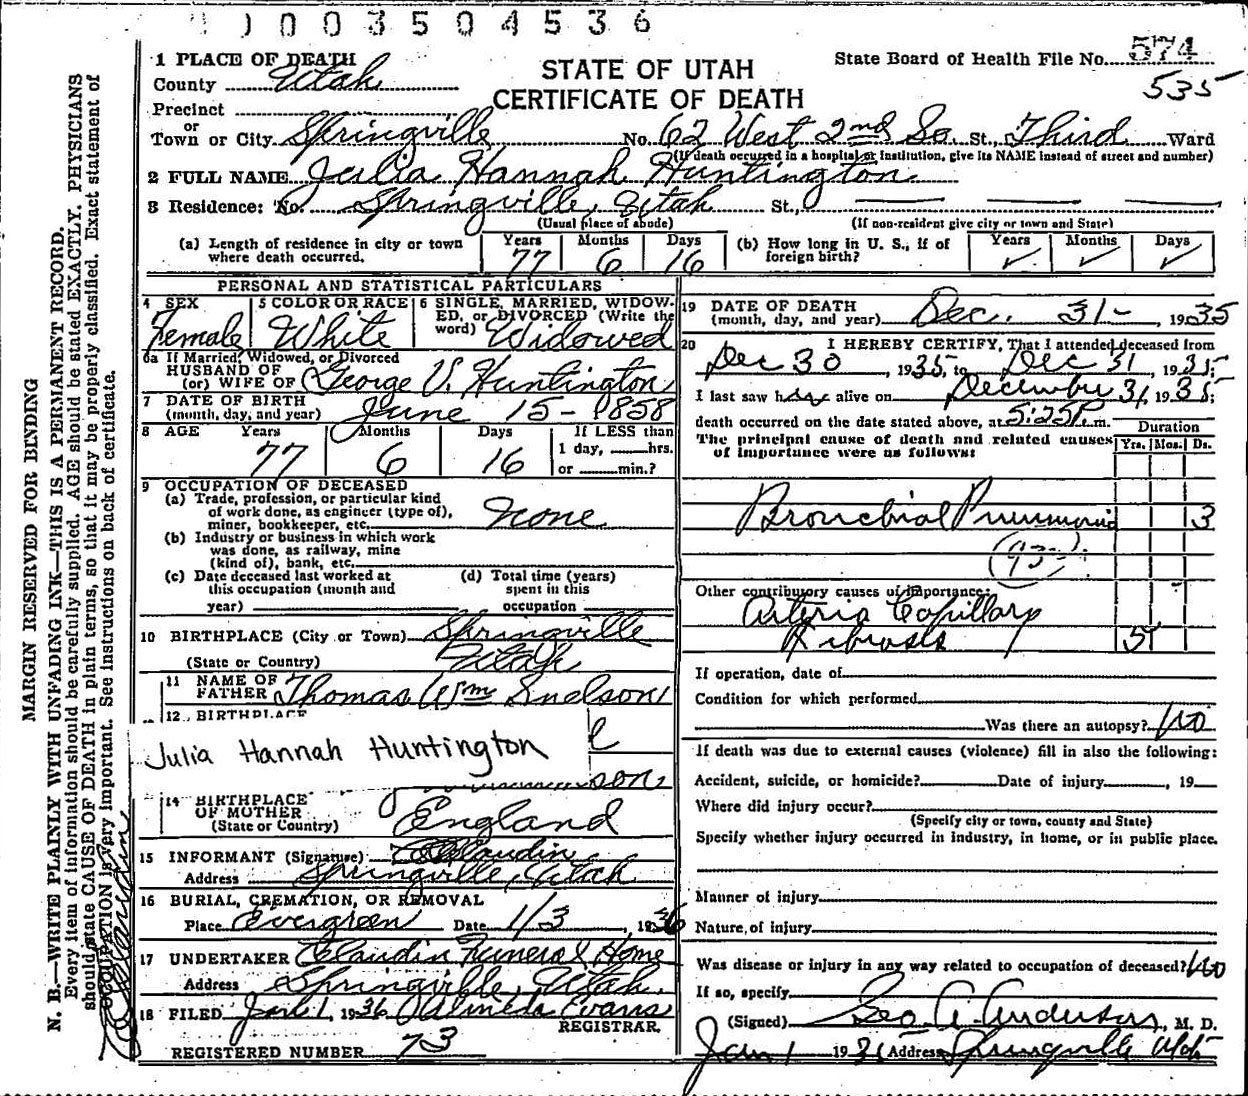 0003504536
1 PLACE OF DEATH
County Utah
STATE OF UTAH
CERTIFICATE OF DEATH
State Board of Health File No. 574
535
Precinct
or
Town or City Springville No. 62 West 2nd So. St., Third Ward
(If death occurred in a hospital or institution, give its NAME instead of street and number)
2 FULL NAME Julia Hannah Huntington
3 Residence: No. Springville, Utah St.,
(Usual place of abode) (If non-resident give city or town and State)
(a) Length of residence in city or town where death occurred. Years 77 Months 6 Days 16
(b) How long in U. S., if of foreign birth? Years ✓ Months ✓ Days ✓
PERSONAL AND STATISTICAL PARTICULARS
4 SEX Female
5 COLOR OR RACE White
6 SINGLE, MARRIED, WIDOWED, or DIVORCED (Write the word) Widowed
6a If Married, Widowed, or Divorced
HUSBAND OF
(or) WIFE OF George V. Huntington
7 DATE OF BIRTH
(month, day, and year) June 15 - 1858
8 AGE Years 77 Months 6 Days 16 If LESS than
1 day, hrs.
or min.?
9 OCCUPATION OF DECEASED
(a) Trade, profession, or particular kind
of work done, as engineer (type of),
miner, bookkeeper, etc. None
(b) Industry or business in which work
was done, as railway, mine
(kind of), bank, etc.
(c) Date deceased last worked at
this occupation (month and
year)
(d) Total time (years)
spent in this
occupation
10 BIRTHPLACE (City or Town) Springville
(State or Country) Utah
11 NAME OF
FATHER Thomas Wm Snelson
12 BIRTHPLACE
Julia Hannah Huntington
son
14 BIRTHPLACE
OF MOTHER
(State or Country) England
15 INFORMANT (Signature) Claudin
Address Springville, Utah
16 BURIAL, CREMATION, OR REMOVAL
Place Evergreen Date 1/3, 1936
17 UNDERTAKER Claudin Funeral Home
Address Springville, Utah.
18 FILED Jan 1, 1936 Almeda Evans
REGISTRAR.
REGISTERED NUMBER 73
19 DATE OF DEATH
(month, day, and year) Dec. 31 - , 1935
20 I HEREBY CERTIFY, That I attended deceased from
Dec 30, 1935, to Dec 31, 1935;
I last saw her alive on December 31, 1935;
death occurred on the date stated above, at 5:25P.m.
Duration
The principal cause of death and related causes
of importance were as follows: Yrs. Mos. Ds.
Bronchial Pneumonia 3
Other contributory causes of importance:
Arterio Capillary
Fibrosis 5
If operation, date of
Condition for which performed
Was there an autopsy? No
If death was due to external causes (violence) fill in also the following:
Accident, suicide, or homicide? Date of injury , 19
Where did injury occur?
(Specify city or town, county and State)
Specify whether injury occurred in industry, in home, or in public place.
Manner of injury
Nature of injury
Was disease or injury in any way related to occupation of deceased? No
If so, specify
(Signed) Geo. A. Anderson, M. D.
Jan 1 1936 Address Springville Utah
MARGIN RESERVED FOR BINDING
N. B.—WRITE PLAINLY WITH UNFADING INK—THIS IS A PERMANENT RECORD.
Every item of information should be carefully supplied. AGE should be stated EXACTLY. PHYSICIANS
should state CAUSE OF DEATH in plain terms, so that it may be properly classified. Exact statement of
OCCUPATION is very important. See instructions on back of certificate.